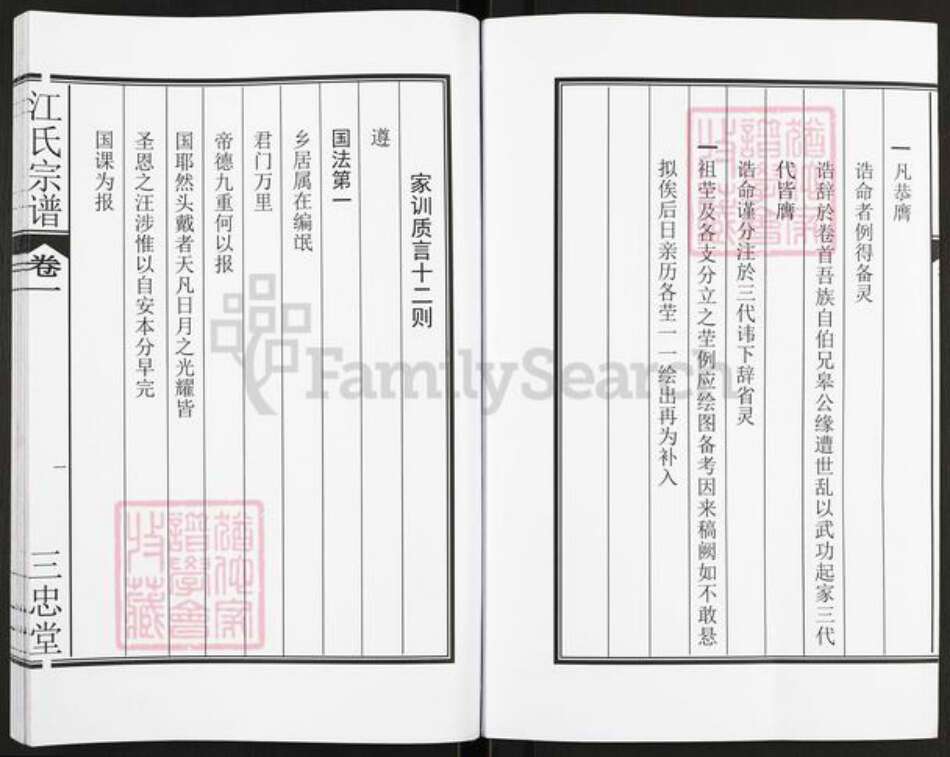 一凡恭膺
诰命者例得备灵
诰辞於卷首吾族自伯兄皋公缘遭世乱以武功起家三代
代皆膺
诰命谨分注於三代讳下辞省灵
一祖茔及各支分立之茔例应绘图备考因来稿阙如不敢悬
拟俟后日亲历各茔一一绘出再为补入
家训质言十二则
遵
国法第一
乡居属在编氓
君门万里
帝德九重何以报
国耶然头戴者天凡日月之光耀皆
圣恩之汪涉惟以自安本分早完
国课为报
江氏宗谱
卷一
一
三忠堂
FamilySearch